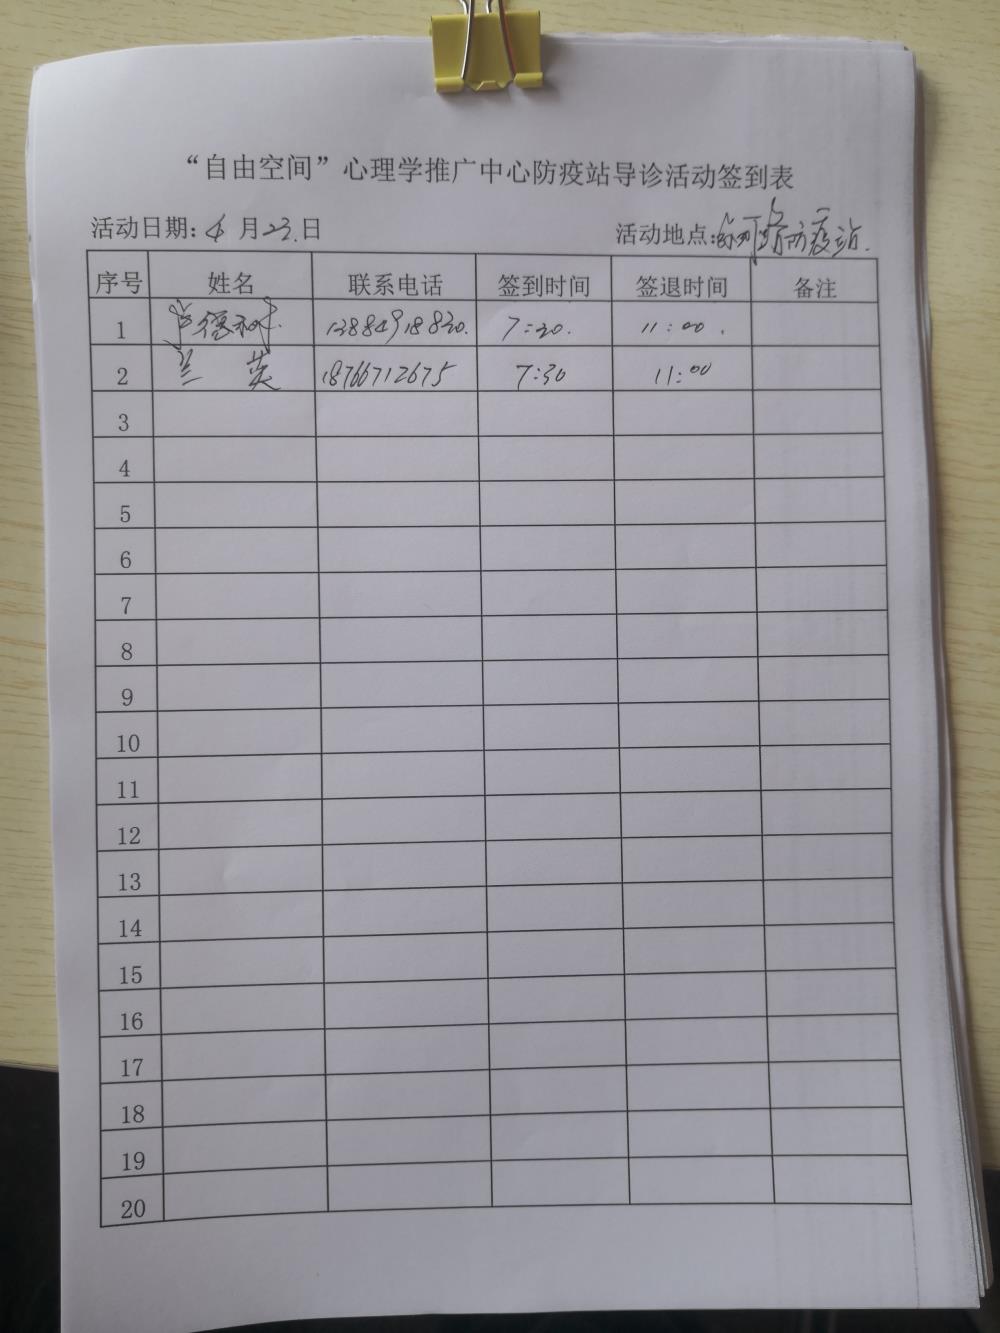 “自由空间”心理学推广中心防疫站导诊活动签到表
活动日期: 4 月 23. 日 活动地点: 防疫站.
序号 姓名 联系电话 签到时间 签退时间 备注
1 德 13884918820. 7:20. 11:00.
2 兰英 18766712675 7:30 11:00
3
4
5
6
7
8
9
10
11
12
13
14
15
16
17
18
19
20